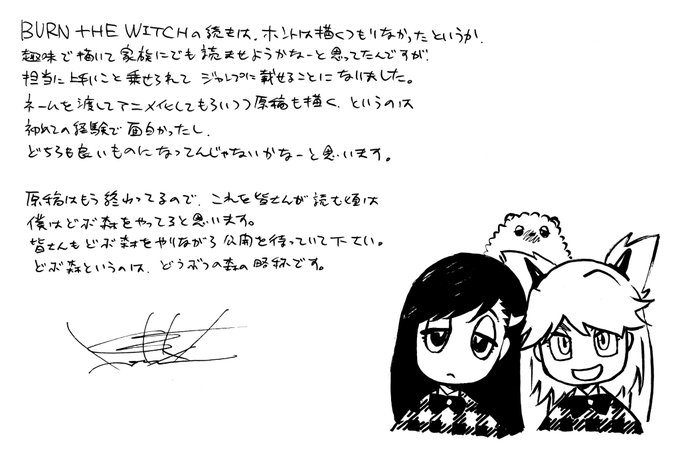 BURN THE WITCHの続きは、ホントは描くつもりなかったというか、
趣味で描いて家族にでも読ませようかなーと思ってたんですが、
担当に上手いこと乗せられて ジャンプに載せることになりました。
ネームを渡してアニメ化してもらいつつ原稿も描く、というのは
初めての経験で面白かったし、
どちらも良いものになってんじゃないかなーと思います。
原稿はもう終わってるので、これを皆さんが読む頃は
僕はどぶ森をやってると思います。
皆さんもどぶ森をやりながら公開を待っていて下さい。
どぶ森というのは、どうぶつの森の略称です。